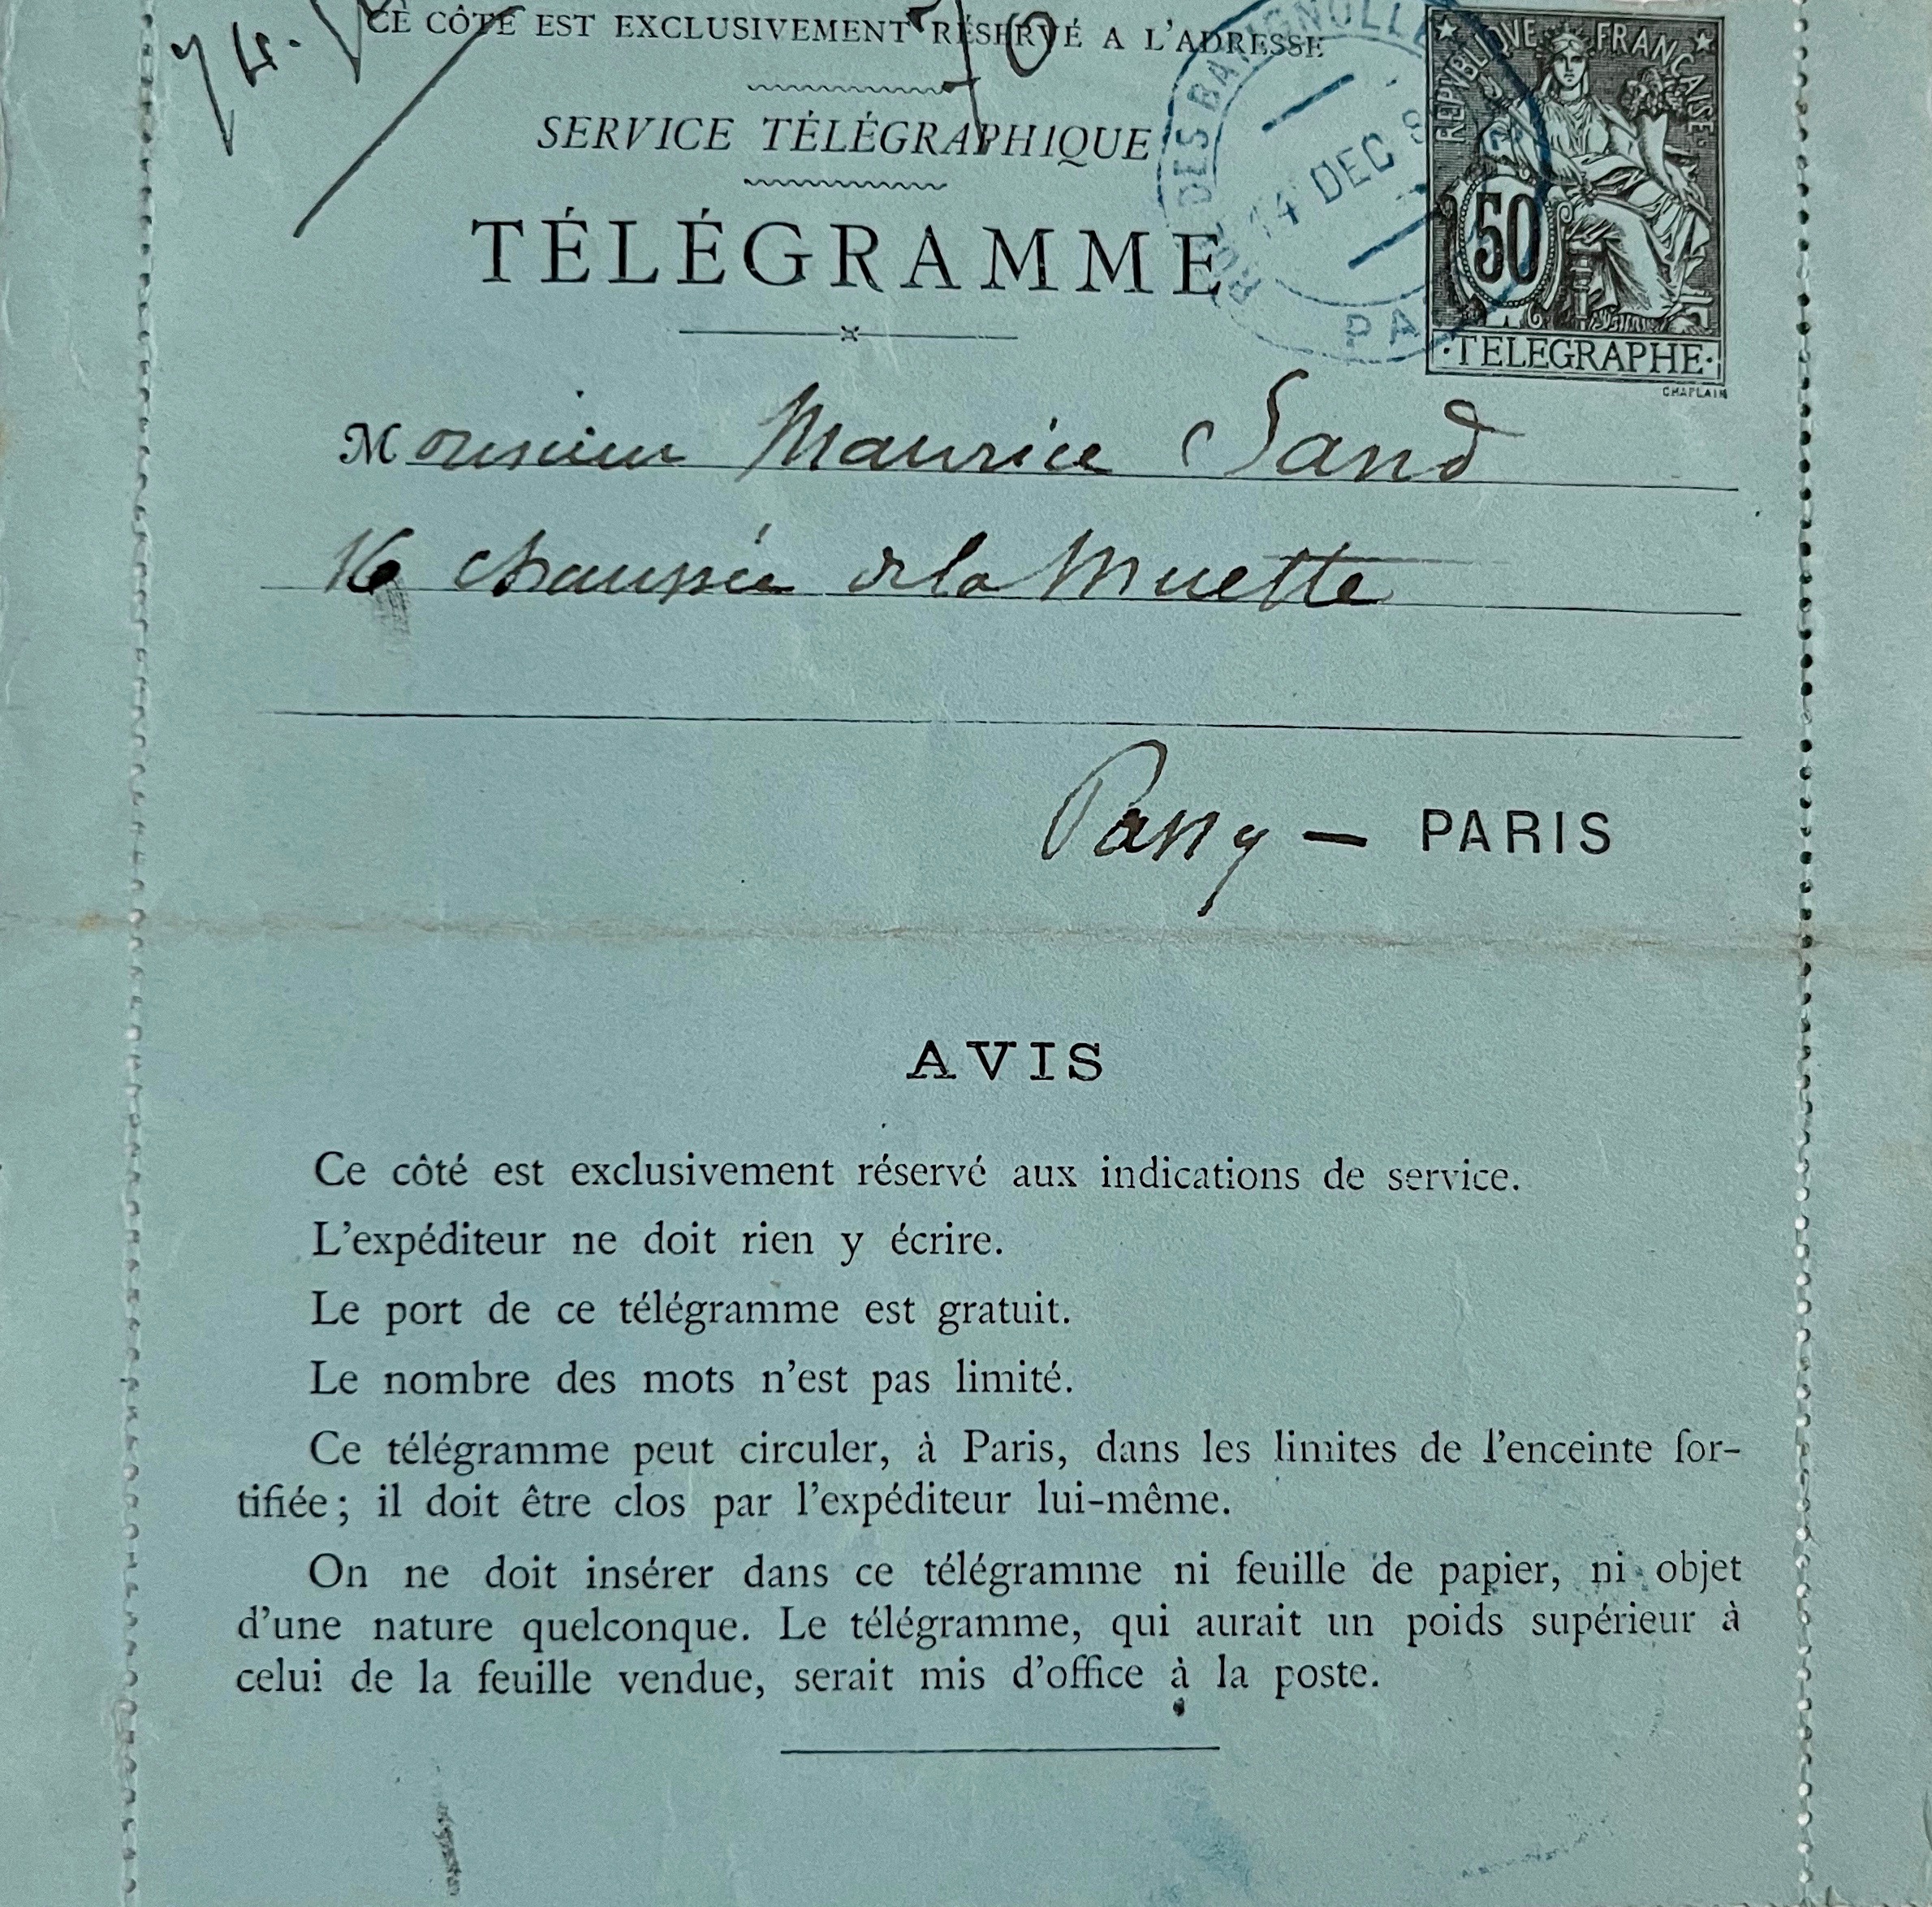 CE CÔTÉ EST EXCLUSIVEMENT RÉSERVÉ A L'ADRESSE
SERVICE TÉLÉGRAPHIQUE
TÉLÉGRAMME
RUE DES BATIGNOLLES
14 DEC 8
PA
REPUBLIQUE FRANCAISE
50
·TELEGRAPHE·
CHAPLAIN
Monsieur Maurice Sand
16 chaussée de la Muette
Passy — PARIS
AVIS
Ce côté est exclusivement réservé aux indications de service.
L'expéditeur ne doit rien y écrire.
Le port de ce télégramme est gratuit.
Le nombre des mots n'est pas limité.
Ce télégramme peut circuler, à Paris, dans les limites de l'enceinte for-
tifiée; il doit être clos par l'expéditeur lui-même.
On ne doit insérer dans ce télégramme ni feuille de papier, ni objet
d'une nature quelconque. Le télégramme, qui aurait un poids supérieur à
celui de la feuille vendue, serait mis d'office à la poste.